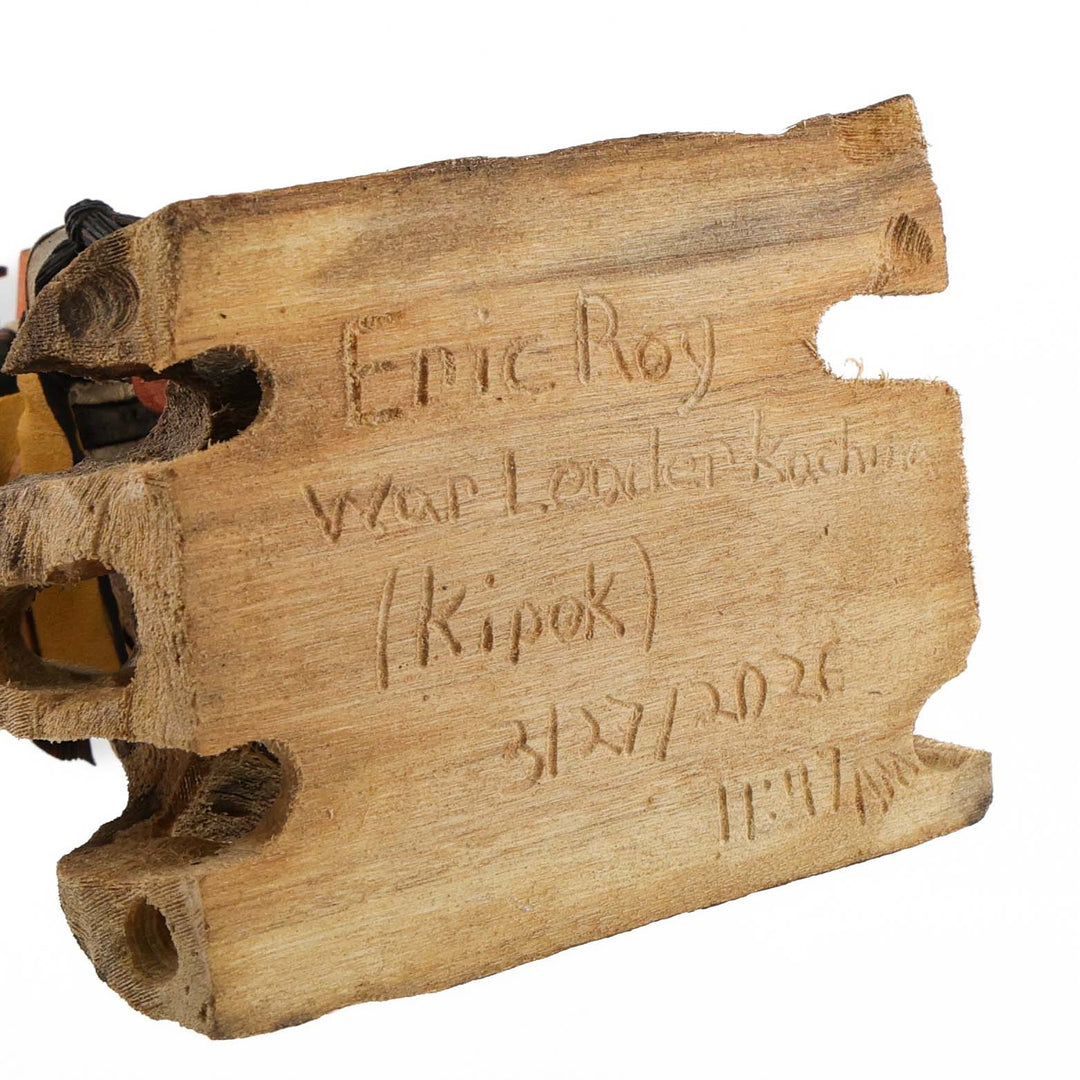 Eric Roy
War Leader Kachina
(Kipok)
3/27/2026
11:47am